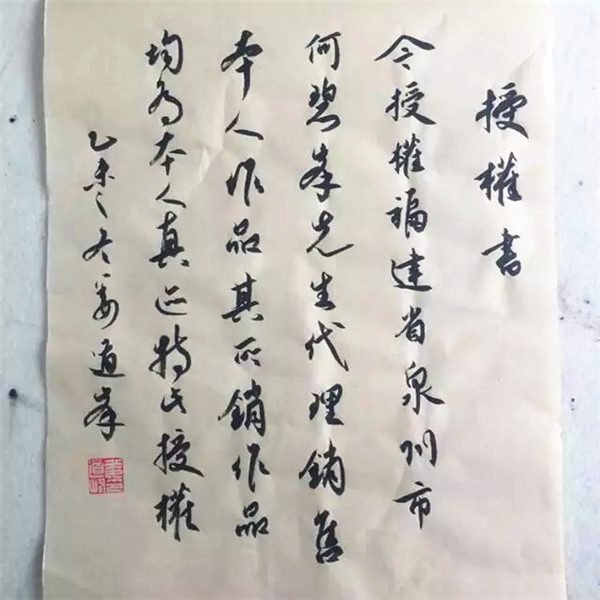 授權書
今授權福建省泉州市
何碧峯先生代理銷售
本人作品其所銷作品
均為本人真迹特此授權
乙未之冬姜道峯